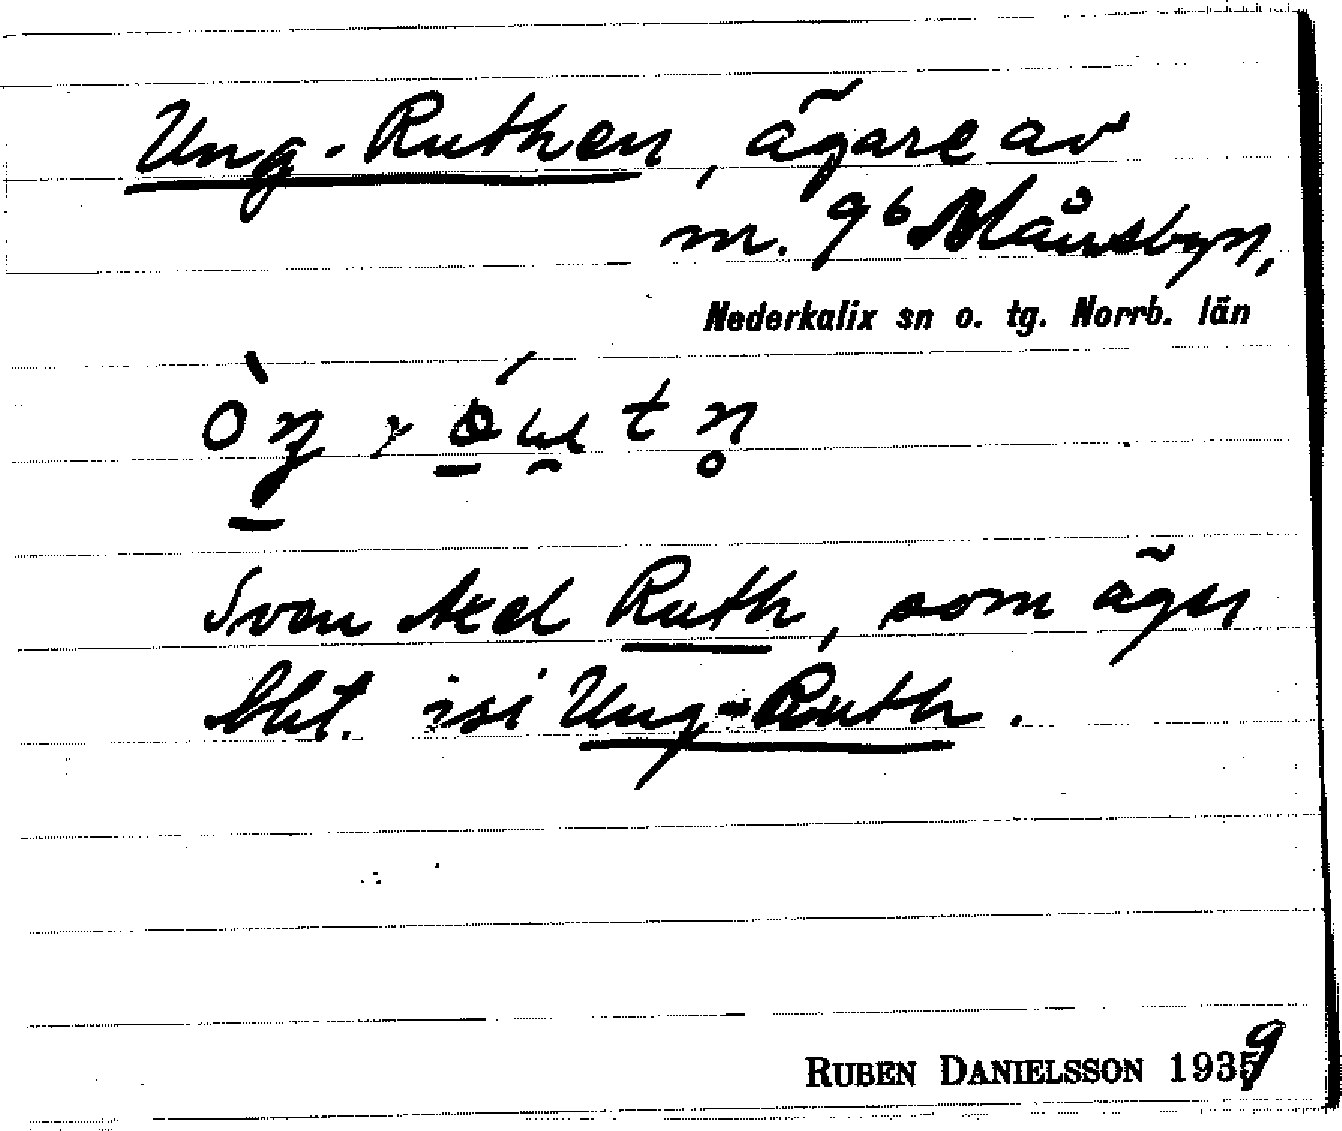 Ung-Ruthen, ägare av
m. 9b Månsbyn,
Nederkalix sn o. tg. Norrb. län
Sven Axel Ruth, som äger
bbt. isi Ung-Ruth.
RUBEN DANIELSSON 1939